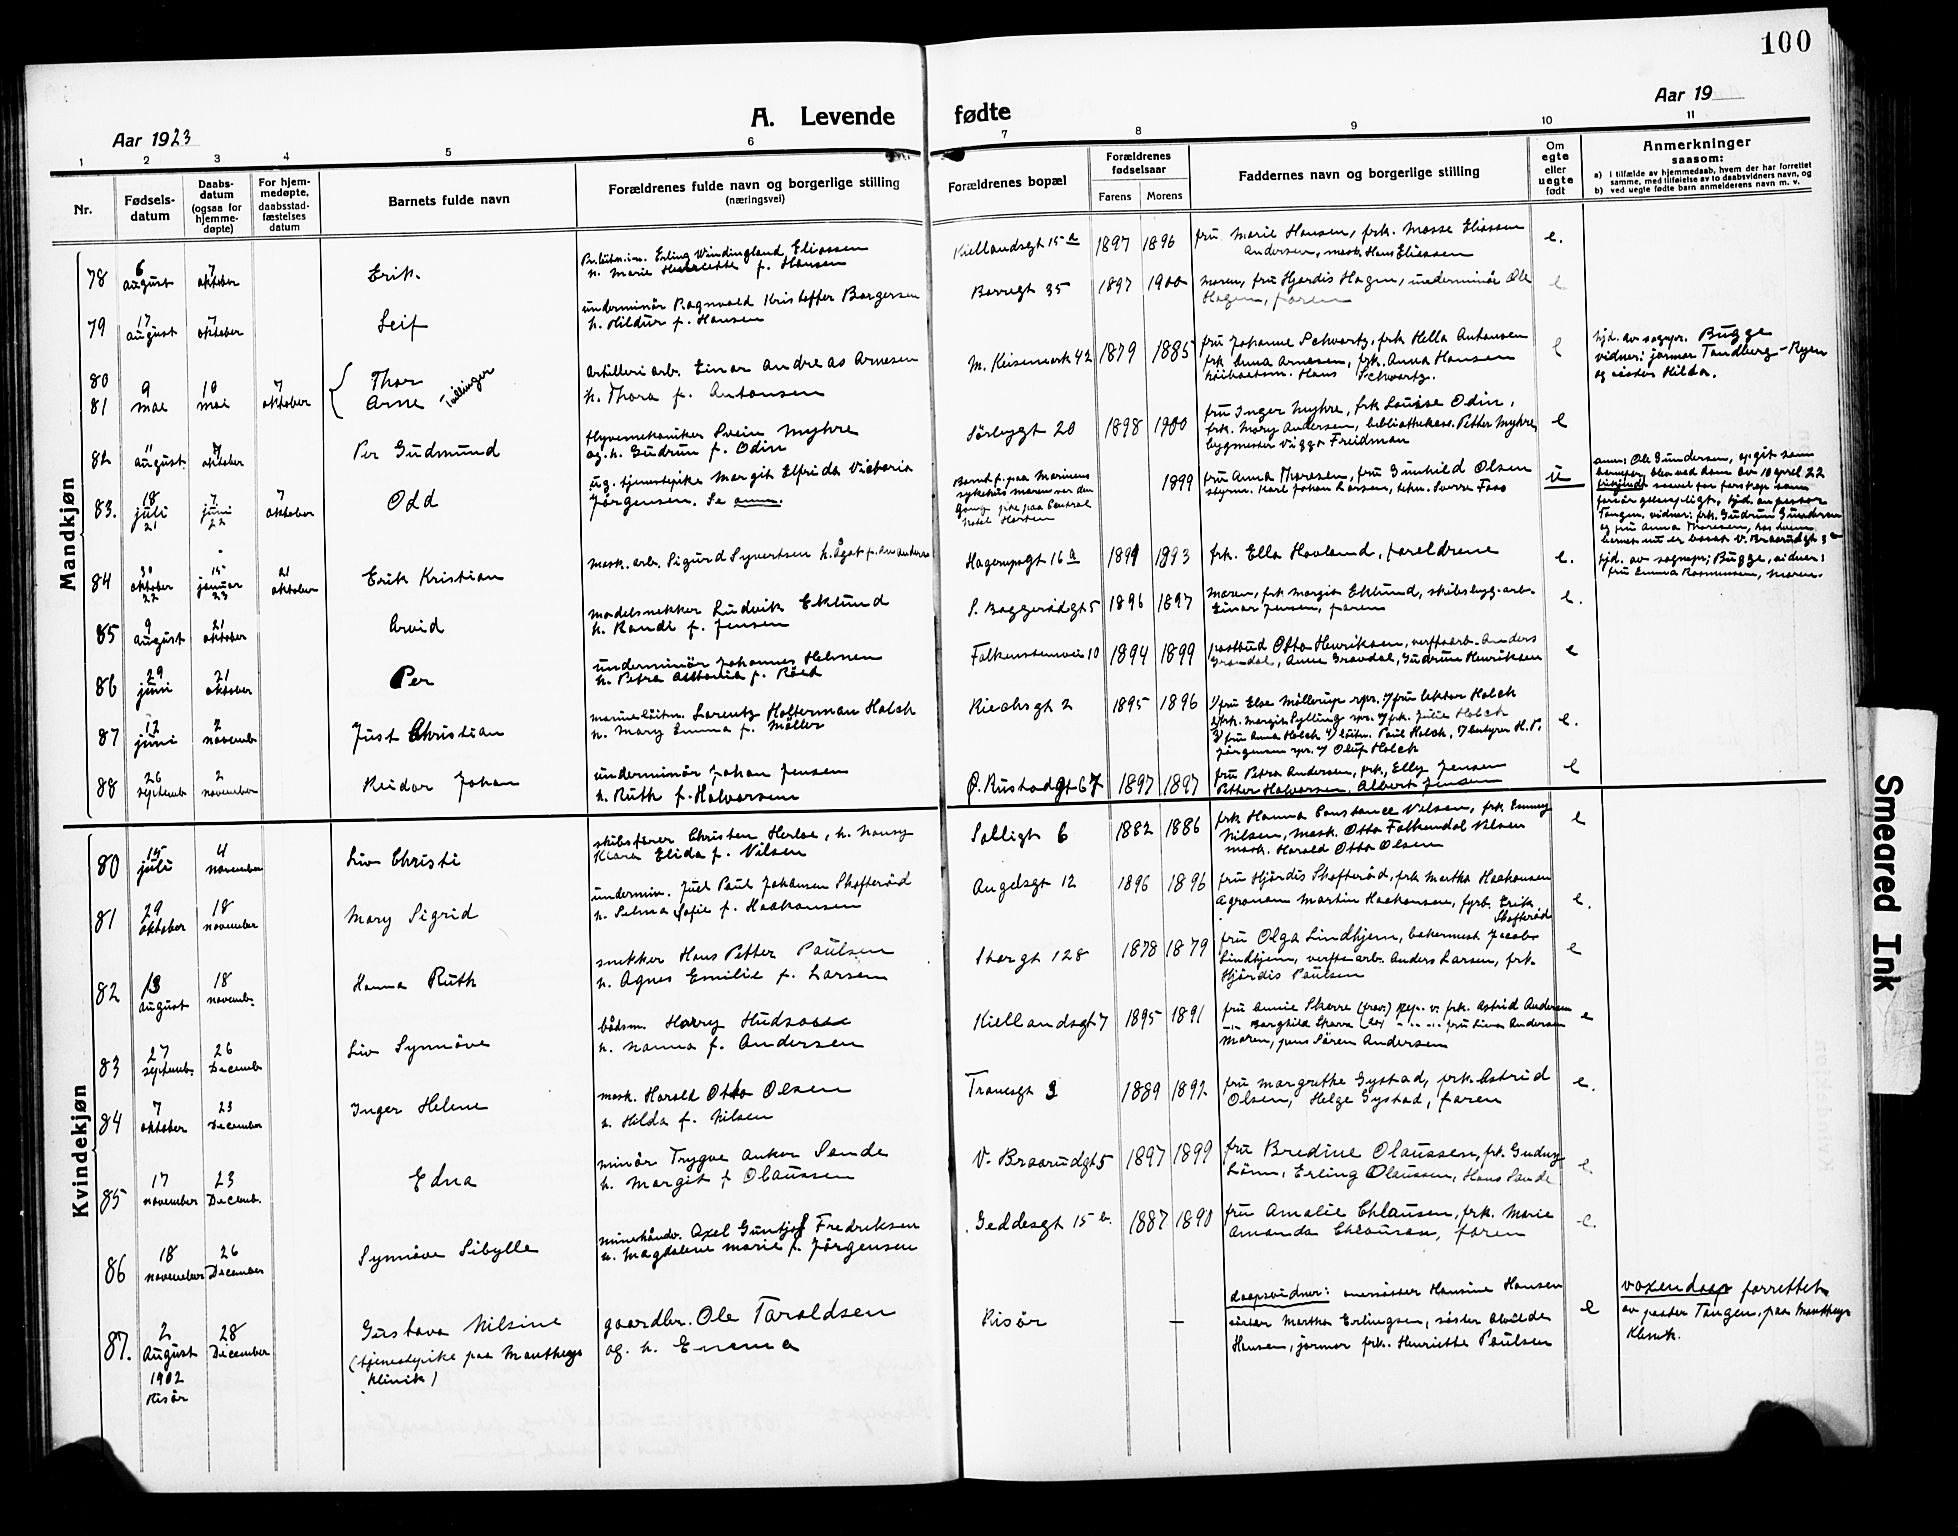 100
Aar 1923
A. Levende fødte
Aar 19
1 2 3 4 5 6 7 8 9 10 11
Nr.
Fødsels-
datum
Daabs-
datum
(ogsaa for
hjemme-
døpte)
For hjem-
medøpte,
daabsstad-
fæstelses
datum
Barnets fulde navn
Forældrenes fulde navn og borgerlige stilling
(næringsvei)
Forældrenes bopæl
Forældrenes
fødselsaar
Farens Morens
Faddernes navn og borgerlige stilling
Om
egte
eller
uegte
født
Anmerkninger
saasom:
a) i tilfælde av hjemmedaab, hvem der har forrettet
samme, med tilføielse av to daabsvidners navn, og
b) ved uegte fødte barn anmelderens navn m. v.
Mandkjøn
78 6 august 7 oktober Erik.
Erling Windingland Eliassen
h. Marie Henriette f. Hansen
Kiellandsgt 15 a 1897 1896
fru Marie Hansen, frk. Mosse Eliassen
Andersen, mask. Hans Eliassen
e.
79 17 august 7 oktober Leif
underminör Ragnvald Kristoffer Borgersen
h. Hildur f. Hansen
Borregt 35 1897 1900
moren, fru Hjordis Hagen, underminör Ole
Hagen, faren
e
80
81 9 mai 10 mai 7 oktober Thor
Arne Tvillinger
artilleriarb. Einar Andreas Arnesen
h. Thora f. Antonsen
M. Keisemark 42 1879 1885
fru Johanne Schwartz, frk Hella Antonsen
frk Anna Arnesen, frk. Anna Hansen
Hans Schwartz.
e
hjd. av sogepr. Bugge
vidner: jormor Tandberg-Ryen
og søster Hilda.
82 11 august 7 oktober Per Gudmund
flyvemekaniker Svein Myhre
og h. Gudrun f. Odin
Sörbygt 20 1898 1900
fru Inger Myhre, frk Louise Odin,
frk. Mary Andersen, bibliothekass. Petter Myhre
bygmester Viggo Freidman
e
83. 18 juli 21 7 juni 22 7 oktober Odd
ug. tjenestepike Margit Elfrida Victoria
Jørgensen. Se anm.
Barnet f. paa Marinens
sykehus moren var den
gang pike paa Central
hotel Horten
1899
fru Anna Thoresen, fru Gunhild Olsen
styrm. Karl Johan Larsen, tekn. Sverre Foss
u
anm: Ole Gundersen, opgit som
barnefar, blev ved dom av 10 april 22
frikjendt saavel for farskap som
forsørgelsespligt, hjd. av pastor
Tangen, vidner: frk. Gudrun Gundersen
og fru Anna Thoresen, hos hvem
barnet nu er bosat V. Braarudgt 3
84 30 oktober 22 15 januar 23 21 oktober Erik Kristian
mask. arb. Sigurd Syvertsen h. Ågot f.
Hagerupsgt 16 a 1891 1893
frk. Ella Hovland, foreldrene
e.
hjd. av sogepr; Bugge, vidner:
fru Emma Rasmussen, moren.
85 9 august 21 oktober Arvid
modelsnekker Ludvik Eklund
h. Randi f. Jensen
S. Baggerödgt 5 1896 1897
moren, frk Margit Eklund, skibsbyg.arb.
Einar Jensen, faren
e.
86 29 juni 21 oktober Per
underminör Johannes Helmen
h. Petra Antonia f. Röed
Falkenstenvei 10 1894 1899
postbud Otto Henriksen, verftsarb. Anders
Gravdal, Anne Gravdal, Gudrun Henriksen
e
87 12 juni 2 november Just Christian
marinelöitn. Lorentz Halterman Holck
h. Mary Emma f. Möller
Riechsgt 2 1895 1896
1/ fru Else Möllerup rpr. v/ fru lektor Holck
2/ frk. Margit Sylling rpr. v/ frk. Julie Holck
3/ fru Anna Holck 4/ löitn. Paul Holck, 5/ bestyrer H. P.
Jörgensen rpr. v/ Oluf Holck
e.
88 26 septemb. 2 november Reidar Johan
underminör Johan Jensen
h. Ruth f. Halvorsen
Ö. Rustadgt 67 1897 1897
fru Petra Andersen, frk. Elly Jensen
Petter Halvorsen, Albert Jensen
e
Kvindekjøn
80 15 juli 4 november Liv Christi
skibsförer Christen Herloe, h. Nancy
Klara Elida f. Nilsen
Solligt 6 1882 1886
frk Hanna Constance Nilsen, frk Emmy
Nilsen, mask. Otto Falkendal Nilsen
mask. Harald Otto Olsen
e
81 29 oktober 18 november Mary Sigrid
undermin. Juel Paul Johansen Skofteröd
h. Selma Sofie f. Haakonsen
Angelsgt 12 1896 1896
fru Hjördis Skofteröd, frk Martha Haakonsen
Agronom Martin Haakonsen, fyrb. Erik
Skofteröd
e.
82 13 august 18 novemb. Hanna Ruth
snekker Hans Petter Paulsen
h. Agnes Emilie f. Larsen
Storgt 128 1878 1879
fru Olga Lindhjem, bakermest. Jacob
Lindhjem, verftsarb. Anders Larsen, frk.
Hjördis Paulsen
e
83 27 septemb. 26 Decemb. Liv Synnöve
bådsm. Harry Hudsosse
h. Nanna f. Andersen
Kiellandsgt 7 1895 1891
fru Annie Skarre (fravr.) rep. v. frk. Astrid Andersen
Borghild Skarre fru Lina Andersen
Moren, Jens Sören Andersen
e
84 7 oktober 23 December Inger Helene
mask. Harald Otto Olsen
h. Hilda f. Nilsen
Tranesgt 3 1889 1892
fru Margrethe Gystad, frk. Astrid
Olsen, Helge Gystad, faren
e.
85 17 november 23 Decemb. Edna
minör Trygve Anker Sande
h. Margit f Olaussen
V. Braarudgt 5 1897 1899
fru Bredine Olaussen, frk. Gudny
Lönn, Erling Olaussen, Hans Sande
e.
86 18 november 26 December Synnöve Sibylle
minehåndv. Axel Guntjof Fredriksen
h. Magdalene Marie f. Jörgensen
Geddesgt 15 b. 1887 1890
fru Amalie Chlausen, frk. Marie
Amanda Chlausen, faren
e.
87. 2 August 1902 Risör 28 December Gustava Nilsine
(tjenestepike paa Mantheys
klinik)
gaardbr. Ole Taraldsen
og h. Emma
Risör —
daapsvidner: oversöster Hansine Hansen
söster Martha Erlingsen, söster Alvilde
Hansen, jormor frk. Henriette Paulsen
e
voxendaap forrettet
av pastor Tangen, paa Mantheys
Klinik.
Smeared Ink